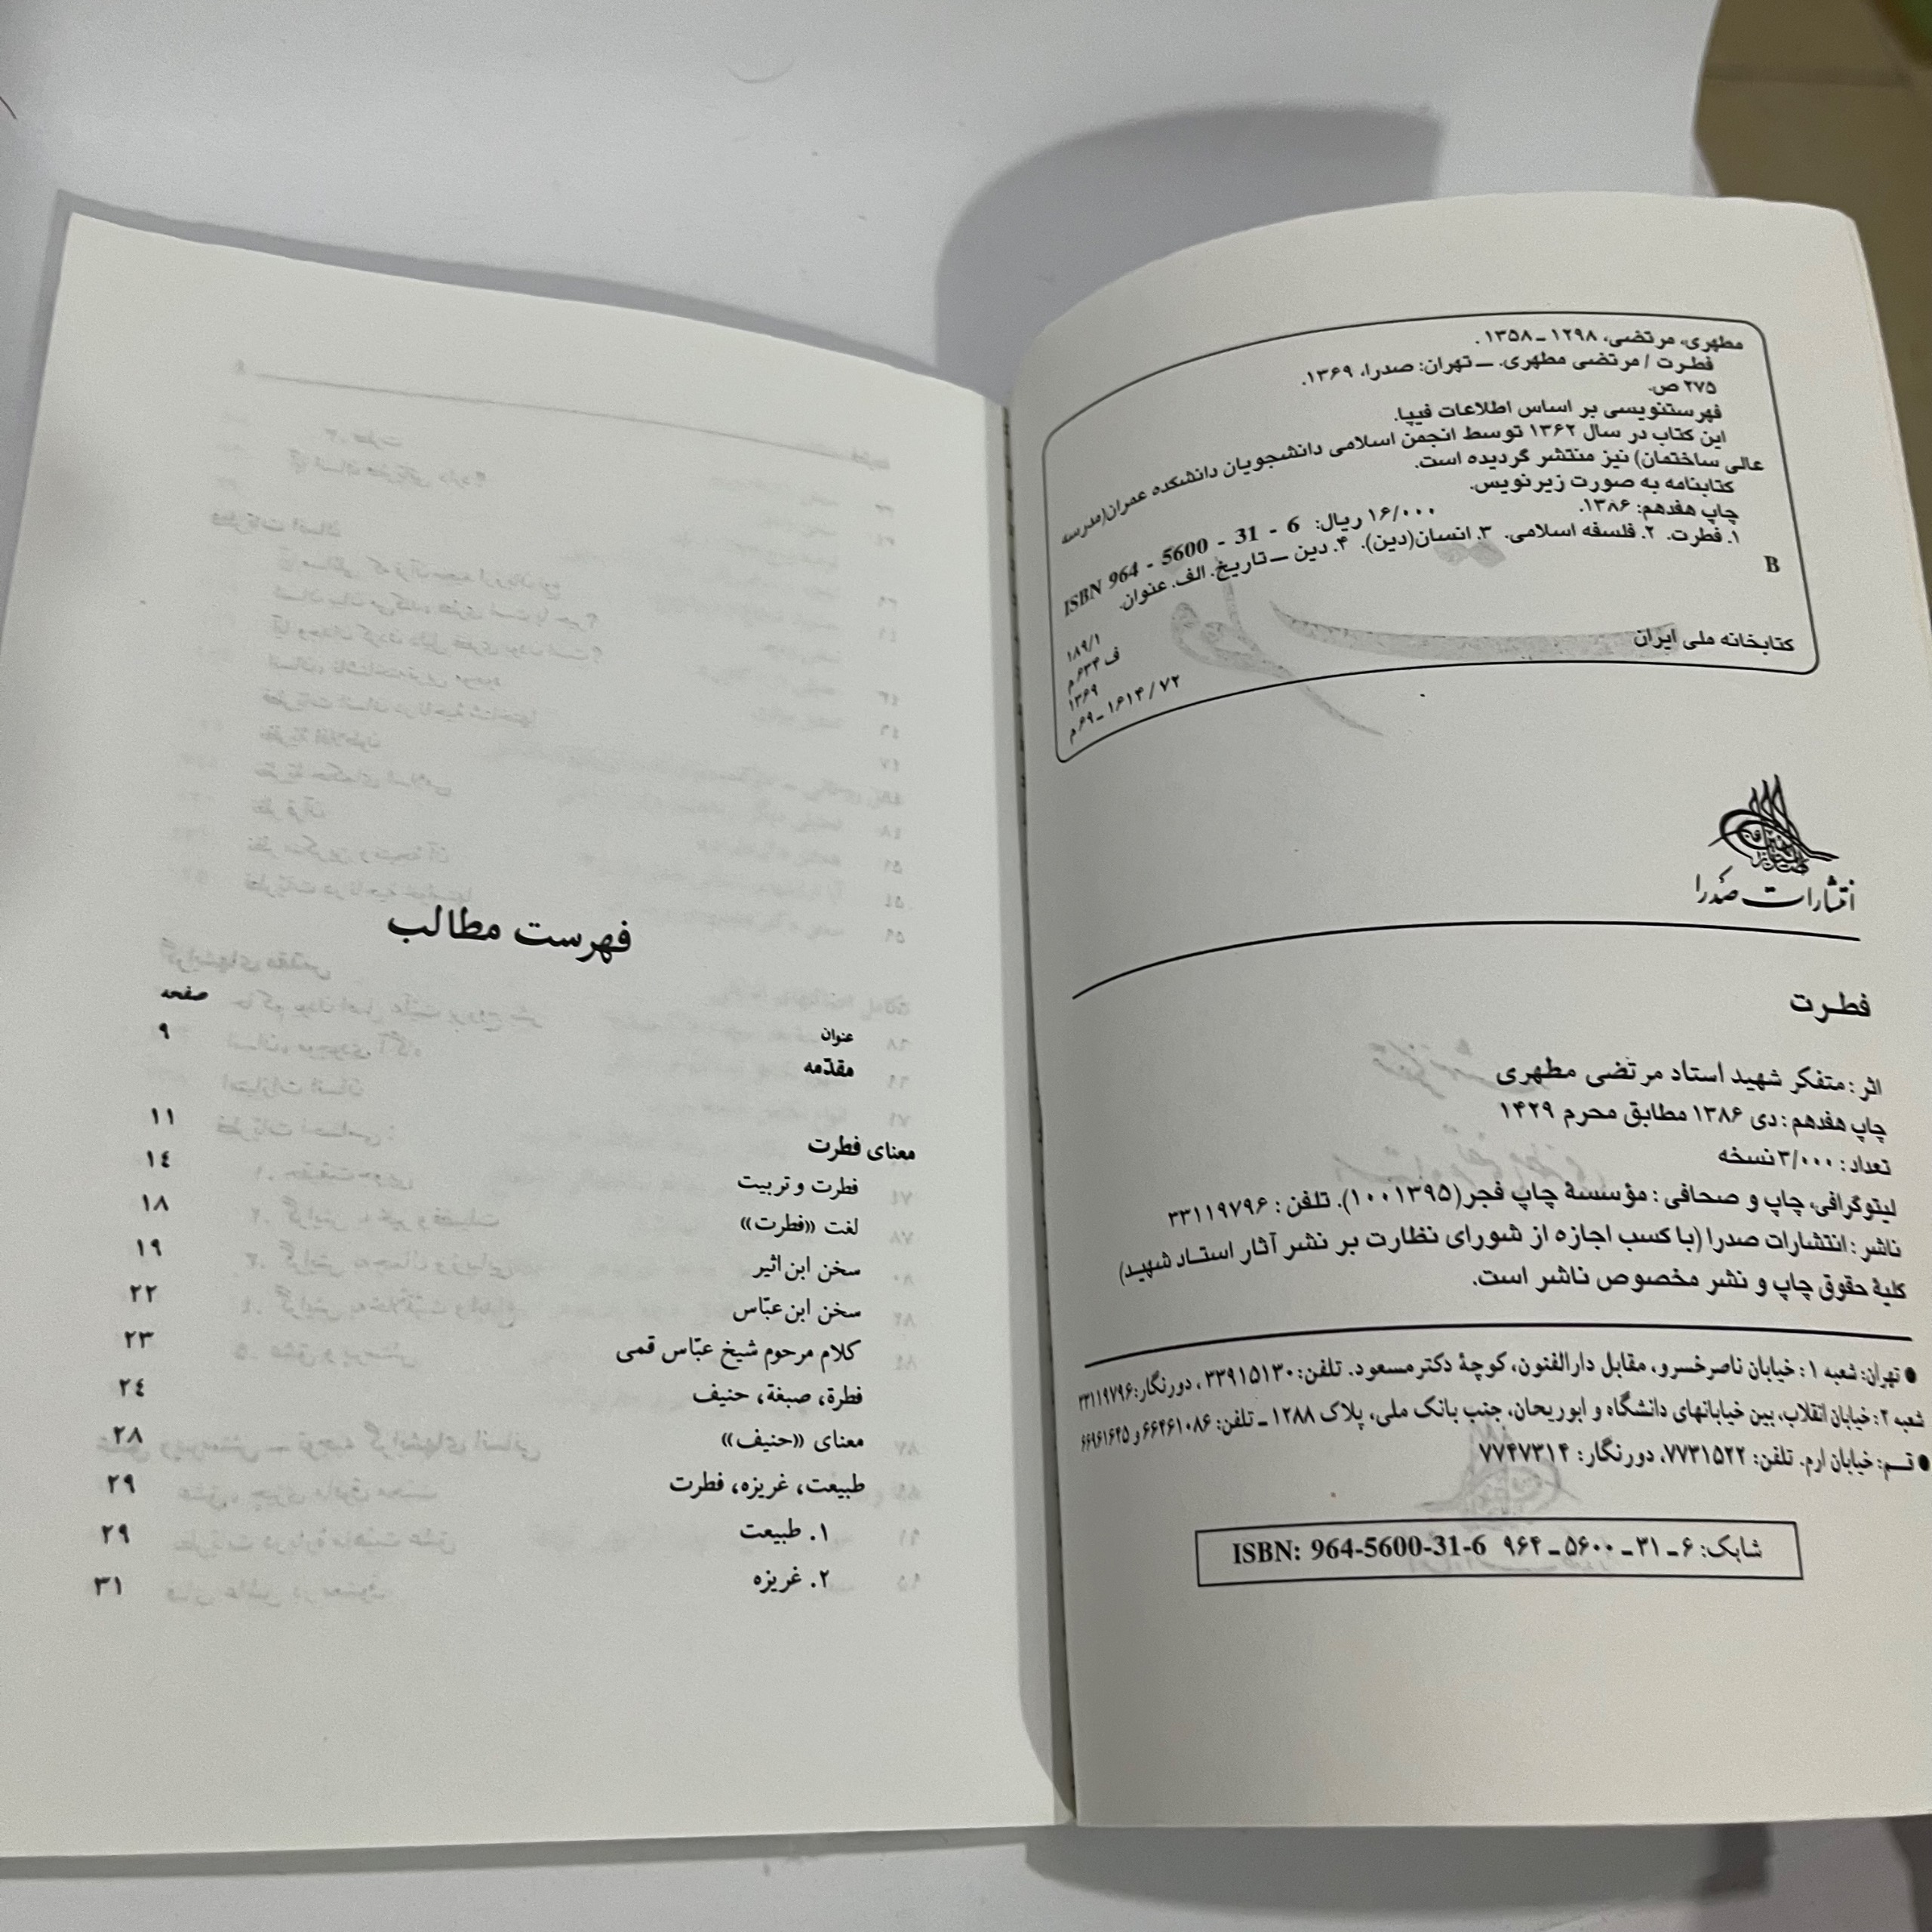 مطهری، مرتضی، ۱۲۹۸ ــ ۱۳۵۸.
فطرت / مرتضی مطهری. ــ تهران: صدرا، ۱۳۶۹.
۲۷۵ ص.
فهرستنویسی بر اساس اطلاعات فیپا.
این کتاب در سال ۱۳۶۲ توسط انجمن اسلامی دانشجویان دانشکده عمران(مدرسه
عالی ساختمان) نیز منتشر گردیده است.
کتابنامه به صورت زیرنویس.
چاپ هفدهم: ۱۳۸۶.
۱۶/۰۰۰ ریال: ISBN 964 - 5600 - 31 - 6
۱. فطرت. ۲. فلسفه اسلامی. ۳. انسان(دین). ۴. دین ــ تاریخ. الف. عنوان.
B
۱۸۹/۱
ف ۶۳۴م
۱۳۶۹
کتابخانه ملی ایران
۷۲ / ۱۶۱۴ ــ ۶۹م
انتشارات صدرا
فطرت
اثر: متفکر شهید استاد مرتضی مطهری
چاپ هفدهم: دی ۱۳۸۶ مطابق محرم ۱۴۲۹
تعداد: ۳/۰۰۰ نسخه
لیتوگرافی، چاپ و صحافی: مؤسسهٔ چاپ فجر(۱۰۰۱۳۹۵). تلفن: ۳۳۱۱۹۷۹۶
ناشر: انتشارات صدرا (با کسب اجازه از شورای نظارت بر نشر آثار استاد شهید)
کلیهٔ حقوق چاپ و نشر مخصوص ناشر است.
● تهران: شعبه ۱: خیابان ناصرخسرو، مقابل دارالفنون، کوچهٔ دکتر مسعود. تلفن: ۳۳۹۱۵۱۳۰، دورنگار: ۳۳۱۱۹۷۹۶
شعبه ۲: خیابان انقلاب، بین خیابانهای دانشگاه و ابوریحان، جنب بانک ملی، پلاک ۱۲۸۸ ــ تلفن: ۶۶۴۶۱۰۸۶ و ۶۶۹۶۱۶۴۵
● قـم: خیابان ارم. تلفن: ۷۷۳۱۵۲۲، دورنگار: ۷۷۴۷۳۱۴
شابک: ۶ ــ ۳۱ ــ ۵۶۰۰ ــ ۹۶۴ ISBN: 964-5600-31-6
فهرست مطالب
عنوان صفحه
مقدّمه ۹
معنای فطرت ۱۱
فطرت و تربیت ۱٤
لغت «فطرت» ۱۸
سخن ابن اثیر ۱۹
سخن ابن عبّاس ۲۲
کلام مرحوم شیخ عبّاس قمی ۲۳
فطرة، صبغة، حنیف ۲٤
معنای «حنیف» ۲۸
طبیعت، غریزه، فطرت ۲۹
۱. طبیعت ۲۹
۲. غریزه ۳۱